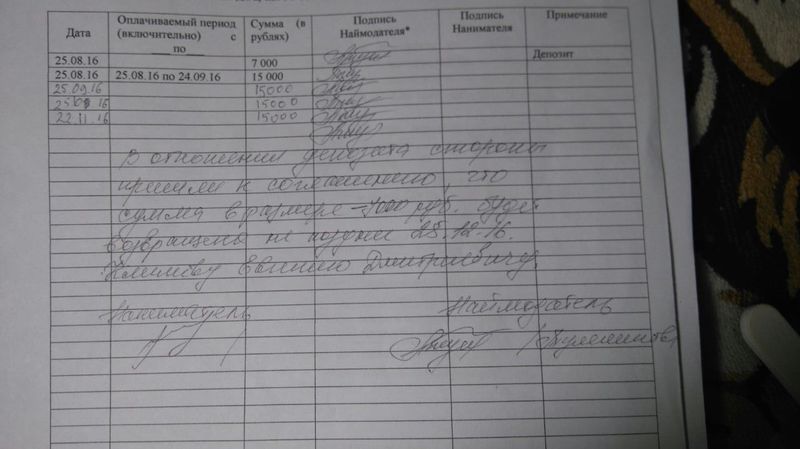 Дата Оплачиваемый период (включительно) с ______ по Сумма (в рублях) Подпись Наймодателя* Подпись Нанимателя Примечание
25.08.16 7 000 Депозит
25.08.16 25.08.16 по 24.09.16 15 000
25.09.16 15000
15000
22.11.16 15000
В отношении депозита стороны
пришли к соглашению, что
сумма в размере 7000 руб. будет
возвращена не позднее 25.12.16.
Евгению Дмитриевичу.
Наниматель Наймодатель